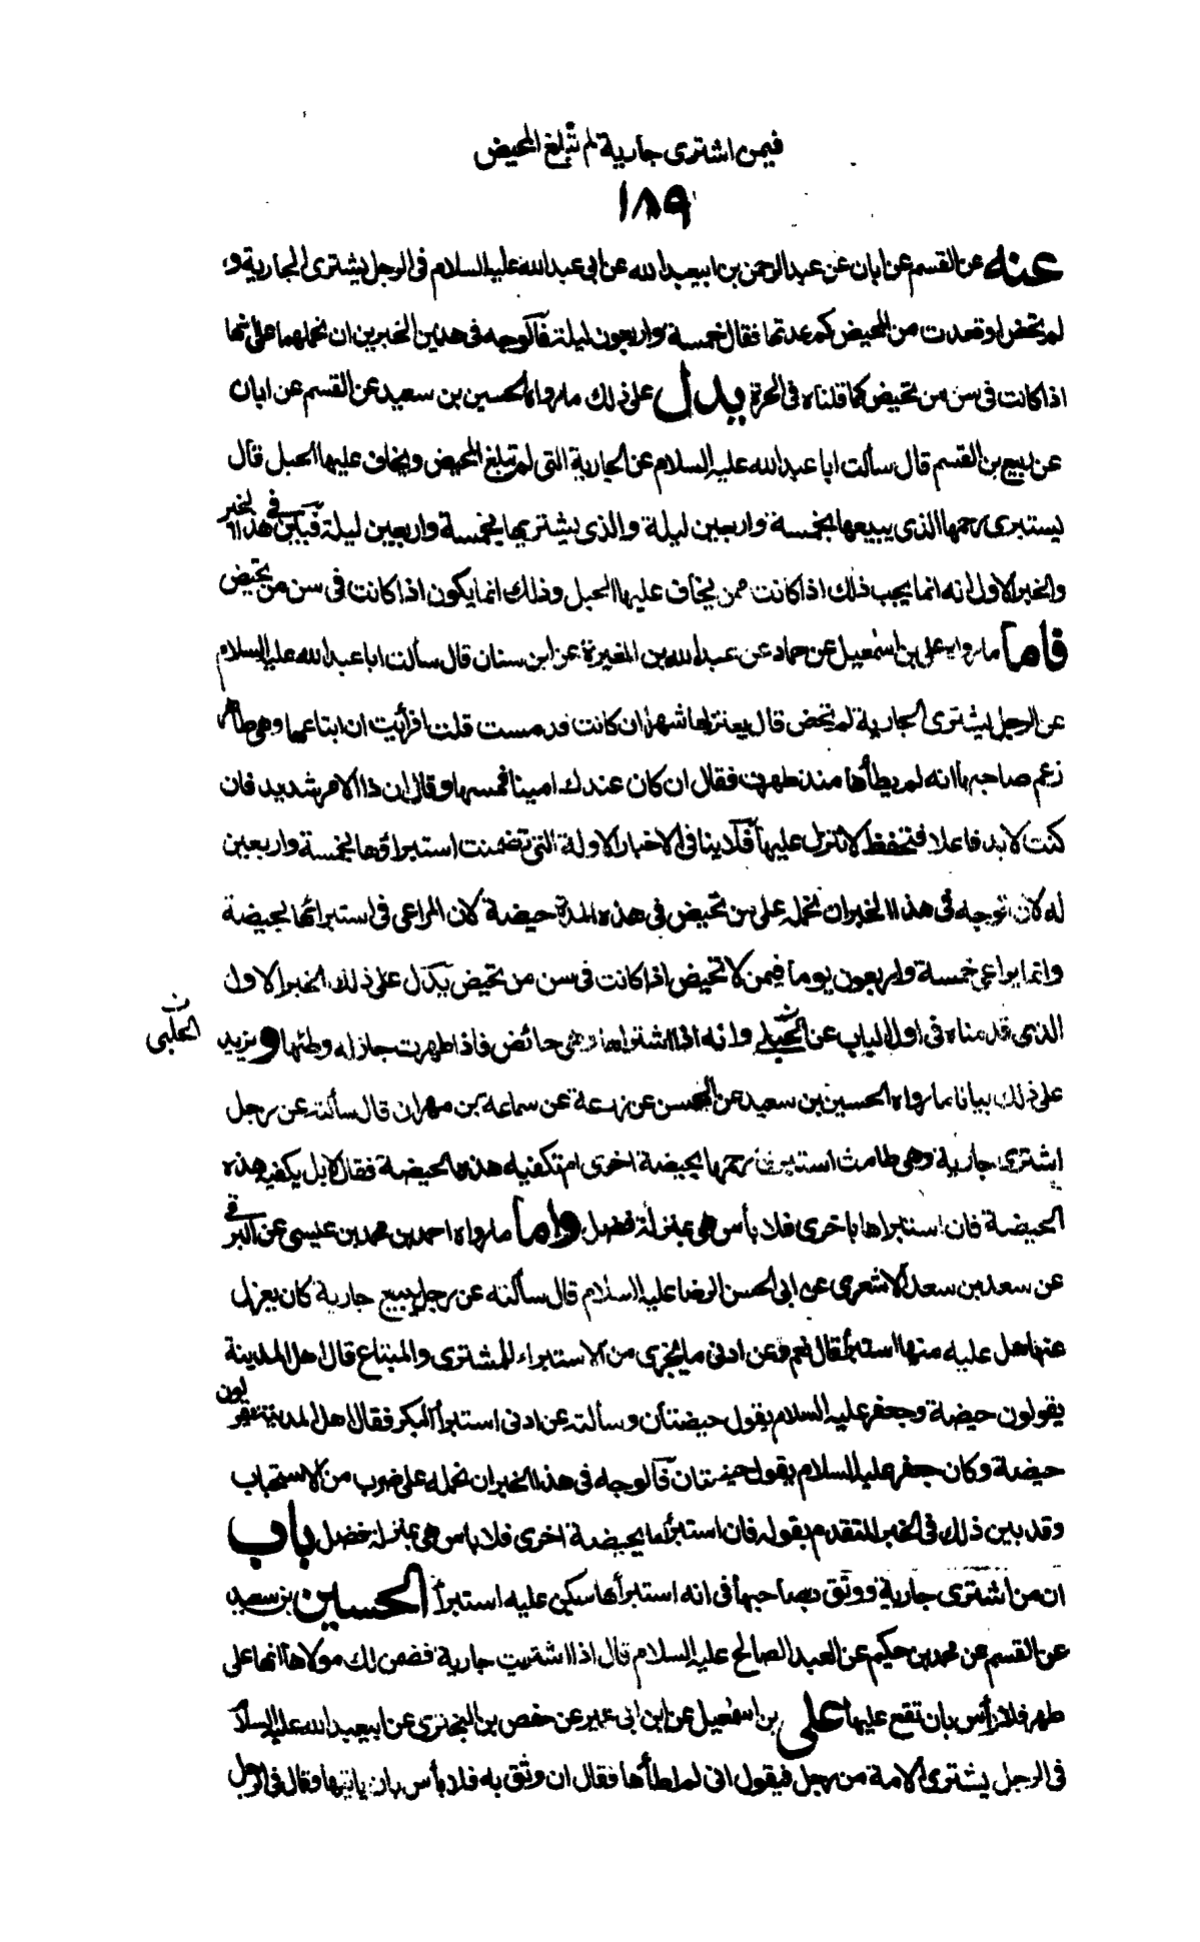 فيمن اشترى جارية لم تبلغ المحيض
١٨٩
عنه عن القسم عن ابان عن عبد الرحمن بن ابيعبد الله عن ابى عبد الله عليه السلام فى الرجل يشترى الجارية و
لم تحض او قعدت من المحيض كم عدتها فقال خمسة واربعون ليلة فالوجه فى هذين الخبرين ان نحملهما على انها
اذا كانت فى سن من تحيض كما قلناه فى الحرة يدل على ذلك ما رواه الحسين بن سعيد عن القسم عن ابان
عن ربيع بن القسم قال سألت ابا عبد الله عليه السلام عن الجارية التى لم تبلغ المحيض ويخاف عليها الحبل قال
يستبرئ رحمها الذى يبيعها بخمسة واربعين ليلة والذى يشتريها بخمسة واربعين ليلة فبين فى هذا الخبر
والخبر الاول انه انما يجب ذلك اذا كانت ممن يخاف عليها الحبل وذلك انما يكون اذا كانت فى سن من تحيض
فاما ما رواه على بن اسمعيل عن حماد عن عبد الله بن المغيرة عن ابن سنان قال سألت ابا عبد الله عليه السلام
عن الرجل يشترى الجارية لم تحض قال يعتزلها شهرا ان كانت قد مست قلت افرأيت ان ابتاعها وهى طاهر
زعم صاحبها انه لم يطأها منذ طهرت فقال ان كان عندك امينا فمسها وقال ان ذا الامر شديد فان
كنت لا بد فاعلا فتحفظ لا تنزل عليها فلا ينافى الاخبار الاولة التى تضمنت استبراؤها بخمسة واربعين
له لان الوجه فى هذا الخبر ان نحمله على من تحيض فى هذه المدة حيضة لان المراعى فى استبرائها بحيضة
وانما يراعى خمسة واربعون يوما فيمن لا تحيض اذا كانت فى سن من تحيض يدل على ذلك الخبر الاول
الذى قدمناه فى اول الباب عن الحبلى وانه اذا اشتراها وهى حائض فاذا طهرت جاز له وطئها ويزيد
الحلبى ن
على ذلك بيانا ما رواه الحسين بن سعيد عن الحسن عن زرعة عن سماعة بن مهران قال سألته عن رجل
اشترى جارية وهى طامث استبرئ رحمها بحيضة اخرى ام تكفيه هذه الحيضة فقال لا بل يكفيه هذه
الحيضة فان استبراها باخرى فلا بأس هى بمنزلة فضل واما ما رواه احمد بن محمد بن عيسى عن البرقى
عن سعد بن سعد الاشعرى عن ابى الحسن الرضا عليه السلام قال سألته عن رجل يبيع جارية كان يعزل
عنها هل عليه منها استبرا قال نعم وعن ادنى ما يجزى من الاستبراء للمشترى والمبتاع قال اهل المدينة
يقولون حيضة وجعفر عليه السلام يقول حيضتان وسألته عن ادنى استبرأ البكر فقال اهل المدينة يقولون
حيضة وكان جعفر عليه السلام يقول حيضتان فالوجه فى هذا الخبر ان نحمله على ضرب من الاستحباب
وقد بين ذلك فى الخبر المتقدم بقوله فان استبرأها بحيضة اخرى فلا باس هى بمنزلة فضل باب
ان من اشترى جارية ووثق بصاحبها فى انه استبرأها سكن عليه استبرأ الحسين بن سعيد
عن القسم عن محمد بن حكيم عن العبد الصالح عليه السلام قال اذا اشتريت جارية فضمن لك مولاها انها على
طهر فلا بأس بان تقع عليها على بن اسمعيل عن ابن ابى عمير عن حفص بن البخترى عن ابيعبد الله عليه السلا
فى الرجل يشترى الامة من رجل فيقول انى لم اطأها فقال ان وثق به فلا بأس بان ياتيها وقال فى الرجل